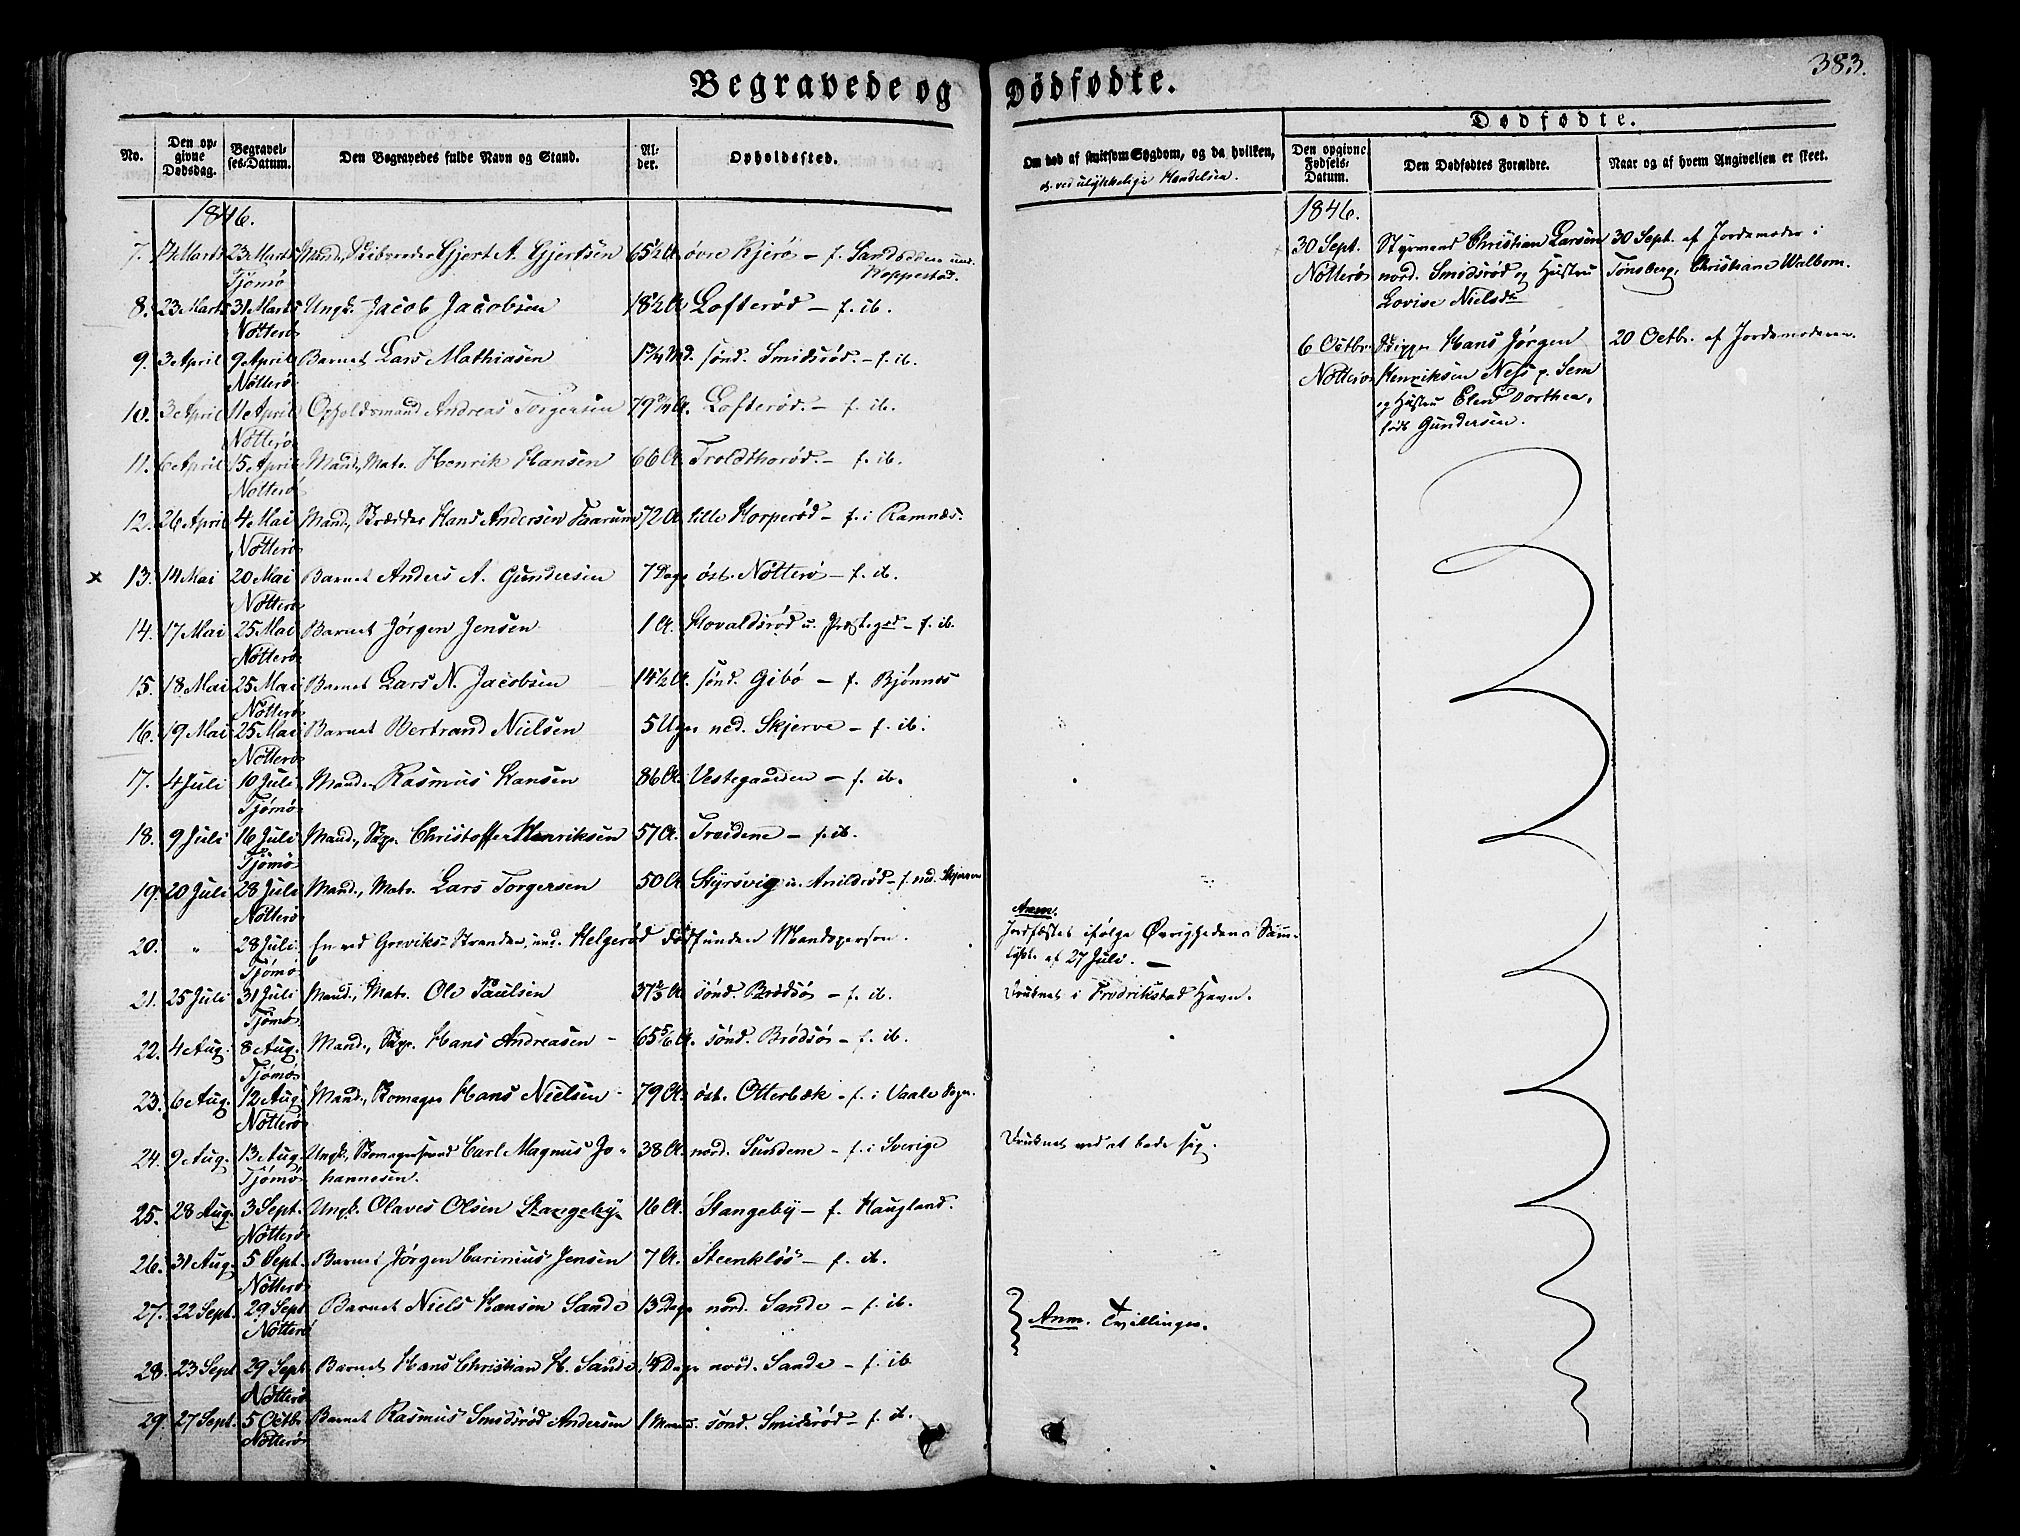 383.
Begravede og Dødfødte.
Dødfødte.
No.
Den opgivne Dødsdag.
Begravelses-Datum.
Den Begravedes fulde Navn og Stand.
Alder.
Opholdssted.
Om død af smitsom Sygdom, og da hvilken,
el. ved ulykkelige Hændelser.
Den opgivne Fødsels-Datum.
Den Dødfødtes Forældre.
Naar og af hvem Angivelsen er skeet.
1846.
7. 14 Marts 23 Marts Mand, Gjert A. Gjertsen 65½ A. øvre Kjerø – f. Sandodden und.
Tjømø Koppestad.
8. 23 Marts 31 Marts Ungk. Jacob Jacobsen 18½ A. Lofterød – f. ib.
Nøtterø
9. 3 April 9 April Barnet Lars Mathiasen sønd. Smidsrød – f. ib.
Nøtterø
10. 3 April 11 April Opholdsmand Andreas Torgersen 79 Lofterød. – f. ib.
Nøtterø
11. 6 April 15 April Mand, Matr. Henrik Hansen 66 A. Troldthorød. – f. ib.
Nøtterø
12. 26 April 4 Mai Mand, Skrædder Hans Andersen 72 A. lille Horperød – f. i Ramnæs.
Nøtterø
x 13. 14 Mai 20 Mai Barnet Anders A. Gundersen 7 Dage øst. Nøtterø – f. ib.
Nøtterø
14. 17 Mai 25 Mai Barnet Jørgen Jensen 1 A. Hovaldsrød u. Præstegrd – f. ib.
Nøtterø
15. 18 Mai 25 Mai Barnet Lars N. Jacobsen 14½ A. sønd. Gibø – f. Bjønnes
Nøtterø
16. 19 Mai 25 Mai Barnet Bertrand Nielsen 5 Uger ned. Skjerve – f. ib.
Nøtterø
17. 4 Juli 10 Juli Mand, Rasmus Hansen 86 A. Vestegaarden – f. ib.
Tjømø
18. 9 Juli 16 Juli Mand, Skpr. Christoffer Henriksen 57 A. Treidene – f. ib.
Tjømø
19. 20 Juli 28 Juli Mand, Matr. Lars Torgersen 50 A. Styrsvig u. Arildrød – f. ned. Skjerve
Nøtterø
20. " 28 Juli En ved Greviks Stranden, und. Helgerød død funden Mandsperson. Anm.
Jordfæstet ifølge Øvrighedens Sam-
Tjømø tykke af 27 Juli. –
21. 25 Juli 31 Juli Mand, Matr. Ole Paulsen sønd. Brødsø – f. ib. Druknet i Fredrikstad Havn.
Tjømø
22. 4 Aug. 8 Aug. Mand, Skpr. Hans Andreasen 65 5/6 A. sønd. Brødsø – f. ib.
Tjømø
23. 6 Aug. 12 Aug. Mand, Skomager Hans Nielsen 79 A. øst. Otterbæk – f. i Vaale Sogn.
Nøtterø
24. 9 Aug. 13 Aug. Ungk., Skomagersvend Carl Magnus Jo- 38 A. nord. Sundene – f. i Sverige Druknet ved at bade sig.
Tjømø hannesen.
25. 28 Aug. 3 Sept. Ungk. Olaves Olsen Stangeby 16 A. Stangeby – f. Haugland.
Nøtterø
26. 31 Aug. 5 Sept. Barnet Jørgen Carinius Jensen 7 A. Steenkløs – f. ib.
Nøtterø
27. 22 Sept. 29 Sept. Barnet Niels Hansen Sande 13 Dage nord. Sande – f. ib.
Nøtterø Anm. Tvillinger.
28. 23 Sept 29 Sept Barnet Hans Christian H. Sande 14 Dage nord. Sande – f. ib
Nøtterø
29. 27 Sept. 5 Octbr Barnet Rasmus Smidsrød Andersen 1 Maaned. sønd. Smidsrød – f. ib.
Nøtterø
1846.
30 Sept. Styrmand Christian Larsen 30 Sept. af Jordemoder i
Nøtterø nord. Smidsrød og Hustru Tønsberg, Christiane Walbom.
Lovise Nielsdtr
6 Octbr Skipper Hans Jørgen 20 Octbr. af Jordemoderen.
Nøtterø Henriksen Ness p. Sem
og Hustru Elen Dorthea,
født Gundersen.